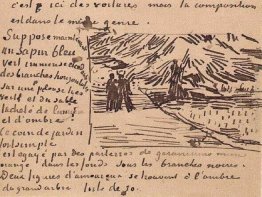 c'est ici des voilures mais la composition
est dans le même genre.
Suppose maintenant
un Sapin bleu
vert immense
des branches horizontales
sur une pelouse très
verte et du sable
tacheté de lumière
et d'ombre.
Ce coin de jardin
fort simple
est égayé par des parterres de geraniums mine
orange dans les fonds sous les branches noires.
Deux figures d'amoureux se trouvent à l'ombre
du grand arbre toile de 30.